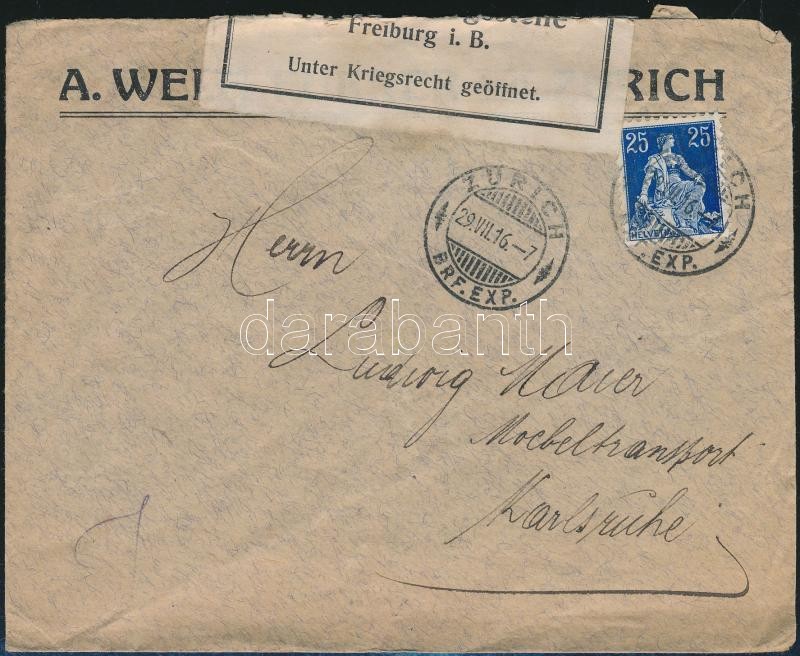 Freiburg i. B.
Unter Kriegsrecht geöffnet.
A. WEI RICH
25 25
HELVETIA
ZÜRICH
29.VII.16.-7
BRF. EXP.
ICH
. EXP.
Herrn
Ludwig Maier
Moebeltransport
Karlsruhe
darabanth